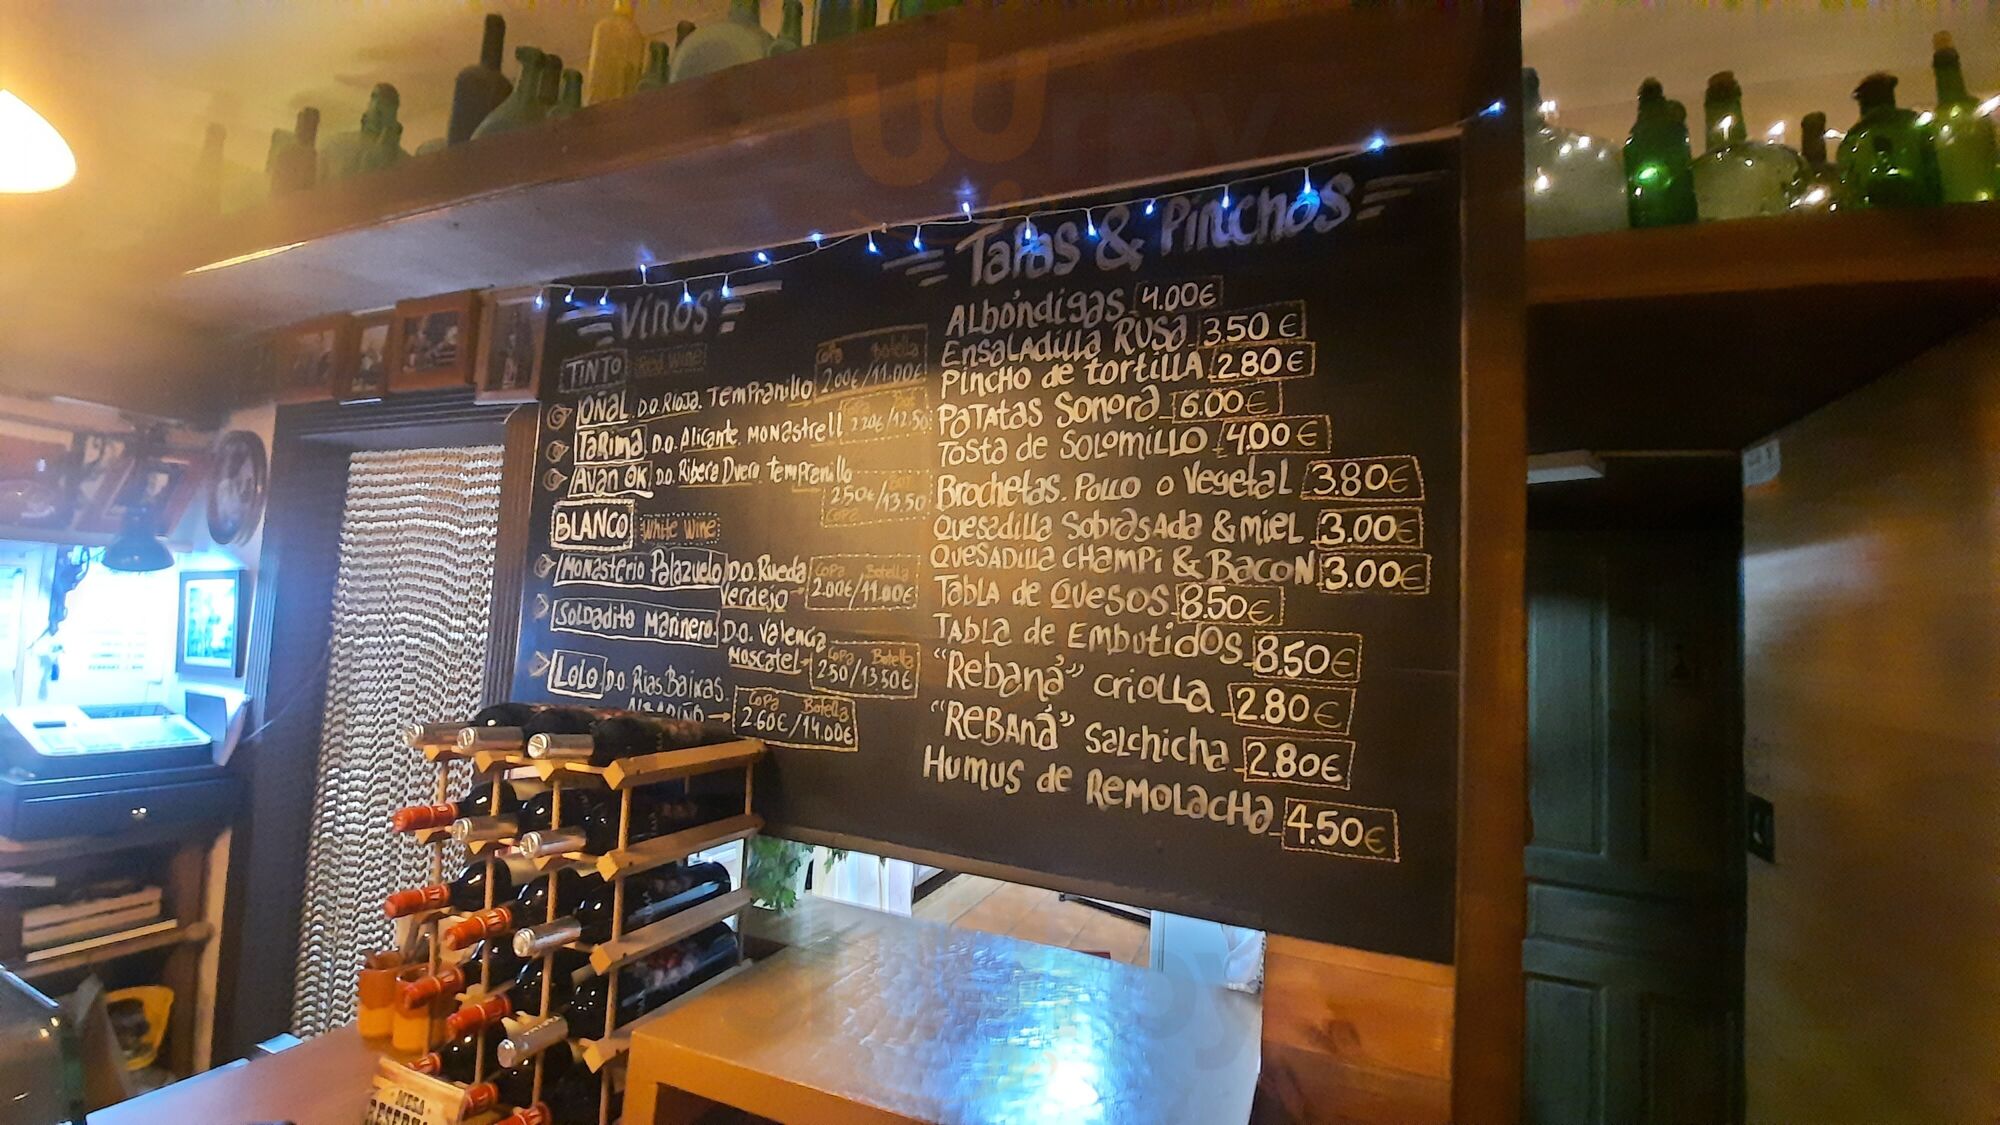 Vinos
TINTO Red Wine
Copa Botella
OÑAL D.O. RiOJA. TEMPRANillo 2.00€/11.00€
Copa Bot
TARIMA D.O. Alicante. MONASTRELL 2.20€/12.50
AVAN OK D.O. Ribera Duero. TEMPRANillo
Bot
2.50€/13.50
Copa
BLANCO White Wine
MONASTERIO Palazuelo D.O. Rueda
Verdejo
Copa Botella
2.00€/11.00€
SOLDADITO MARINERO D.O. Valencia
MOSCATEL
Copa Botella
2.50/13.50€
LOLO D.O. RIAS BAIXAS
ALBARIÑO
Copa Botella
2.60€/14.00€
TAPAS & PINCHOS
ALbóndigas 4.00€
ENSALADILLA RUSA 3.50€
PINCHO de tORtiLLA 2.80€
PATATAS SONORA 6.00€
TOSTA de SOLOMILLO 4.00€
BROCHETAS. POLLO o VEGETAL 3.80€
QUESADILLA SOBRASADA & MIEL 3.00€
QUESADILLA CHAMPI & BACON 3.00€
TABLA de QUESOS 8.50€
TABLA de EMBUTIDOS 8.50€
"Rebaná" CRIOLLA 2.80€
"REBANá" SALCHICHA 2.80€
HUMUS de REMOLACHA 4.50€
MESA
RESERVADA